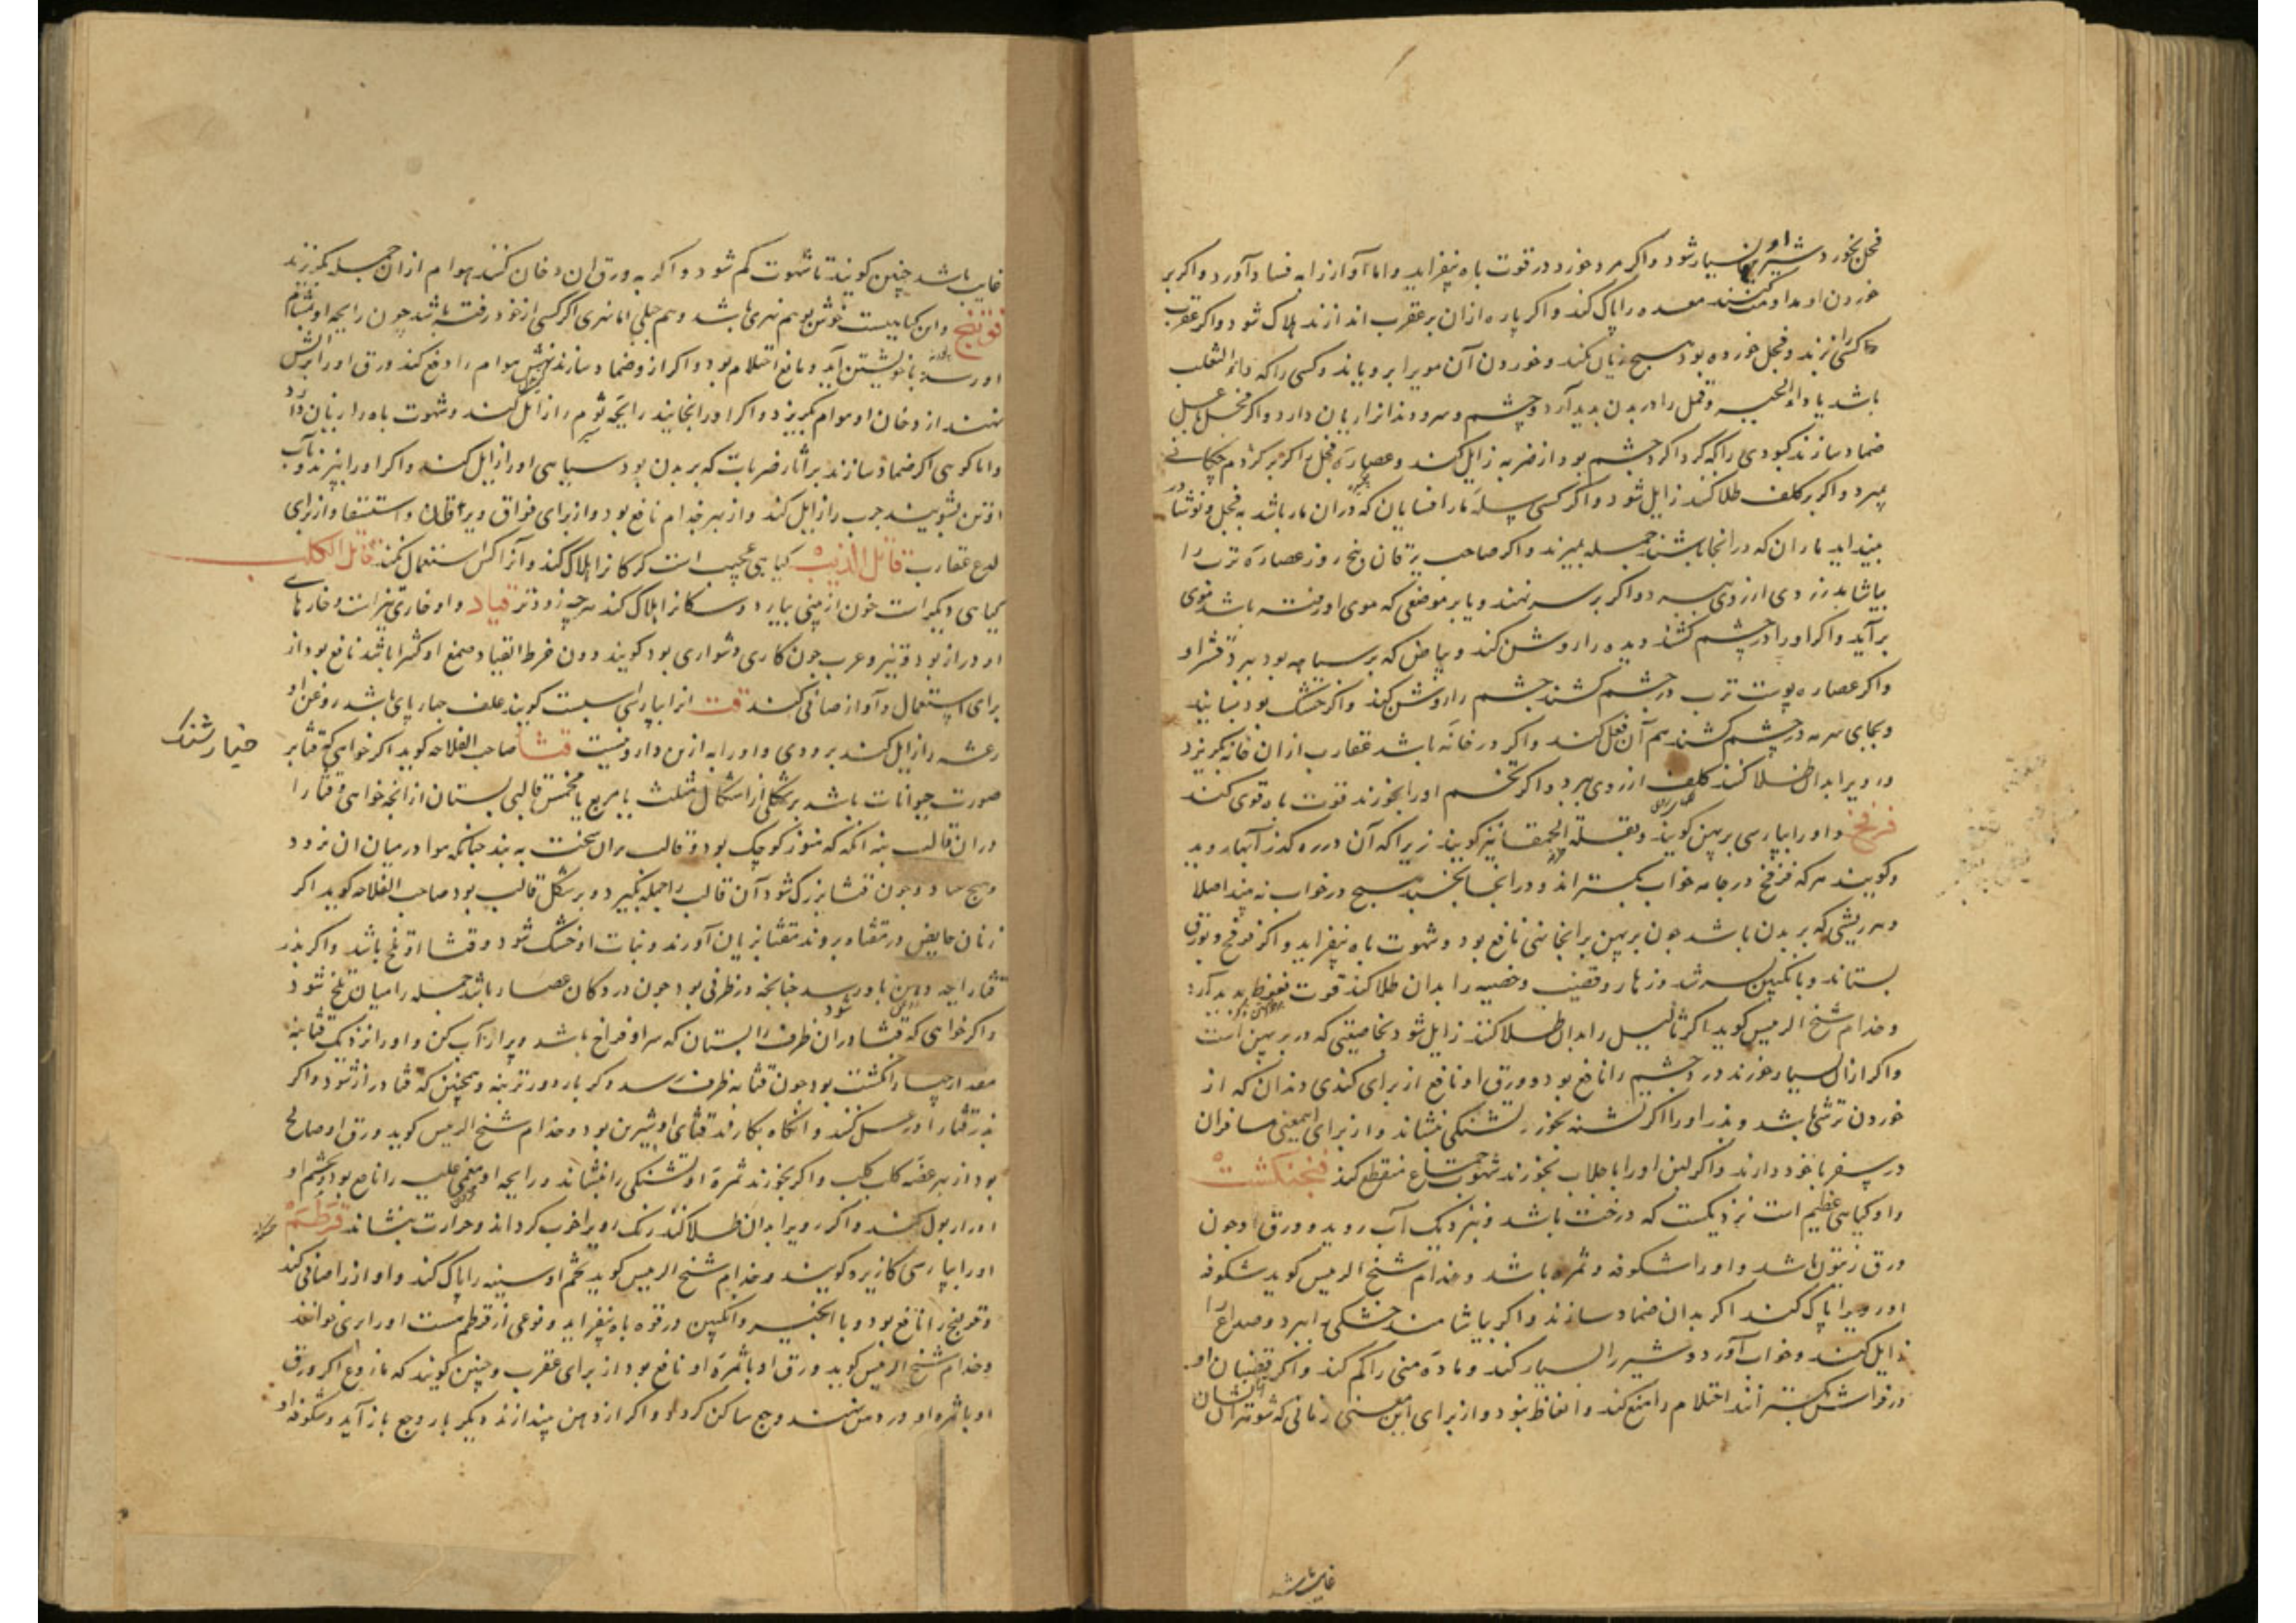 فجل بخورد شیر او بسیار شود و اگر مرد خورد در قوت باه بیفزاید و اما آواز را به فساد آورد و اگر بر
خوردن او مداومت کنند معده را پاک کند و اگر پاره ازان بر عقرب اندازند هلاک شود و اگر عقرب
کسی را بزند و فجل خورده بود هیچ زیان نکند و خوردن آن مویرا برویاند و کسی را که داء الثعلب
باشد یا داء الحیه و قمل را در بدن پدید آرد و چشم و سر و دندانرا زیان دارد و اگر فجل با عسل
ضماد سازند کبودی را که گرداگرد چشم بود از ضربه زایل کند و عصاره فجل را اگر بر کژدم چکانی
بمیرد و اگر بر کلف طلا کند زایل شود و اگر کسی سله مار افسایان که دران مار باشد به فجل و نوشادر
بینداید ماران که در انجا باشند جمله بمیرند و اگر صاحب یرقان پنج روز عصاره ترب را
بیاشامد زردی از روی ببرد و اگر بر سر نهند و یا بر موضعی که موی او رفته باشد موی
برآید و اگر او را در چشم کشند دیده را روشن کند و بیاض که بر سیاهه بود ببرد قشر او
و اگر عصاره پوست ترب در چشم کشند چشم را روشن کند و اگر خشک بود بسایند
و بجای سرمه در چشم کشند هم آن فعل کند و اگر در خانه باشد عقارب ازان خانه بگریزد
و رویرا بدان طلا کنند کلف از روی ببرد و اگر تخم او را بخورند قوت باه قوی کند
فرفخ و او را بپارسی پرپهن گویند و بقلة الحمقا نیز گویند زیرا که آن در ره گذر آبها روید
و گویند هر که فرفخ در جامه خواب بگستراند و در انجا بخسبد هیچ در خواب نه بیند اصلا
و هر ریشی که بر بدن باشد چون پرپهن برانجا نهی نافع بود و شهوت باه بیفزاید و اگر فرفخ و بورق
بستاند و بانگبین بسرشد و زهار و قضیب و خصیه را بدان طلا کند قوت نعوظ پدید آرد
و خدام شیخ الرییس گوید اگر ثآلیل را بدان طلا کنند زایل شود بخاصیتی که در پرپهن است
و اگر ازان بسیار خورند درد چشم را نافع بود و ورق او نافع از برای کندی دندان که از
خوردن ترشی باشد و بذر او را اگر تشنه بخورد تشنگی بنشاند و از برای این معنی مسافران
در سفر با خود دارند و اگر لبن او را با جلاب بخورند شهوت جماع منقطع کند فنجنکشت
و او گیاهی عظیم است نزدیکست که درخت باشد و بنزدیک آب روید و ورق او چون
ورق زیتون باشد و او را شکوفه و ثمره باشد و خدام شیخ الرییس گوید شکوفه
او رویرا پاک کند اگر بدان ضماد سازند و اگر بیاشامند خشکی ببرد و صداع را
زایل کند و خواب آورد و شیر را بسیار کند و ماده منی را کم کند و اگر قضبان او
در فراش بگسترانند احتلام را منع کند و انعاظ نبود و از برای این معنی زنانی که شوهرانشان
غایب باشد
غایب باشد چنین گویند تا شهوت کم شود و اگر به ورق ان دخان کنند هوام ازان جمله بگریزند
فوتنج و این گیاهیست خوش بو هم نهری باشد و هم جبلی اما نهری اگر کسی از خود رفته باشد چون رایحه او بمشام
او رسد با خویشتن آید و مانع احتلام بود و اگر ازو ضماد سازند نهش هوام را دفع کند ورق او را بر آتش
نهند از دخان او هوام بگریزد و اگر او را بخایند رایحه ثوم را زایل کند و شهوت باه را زیان دارد
و اما کوهی اگر ضماد سازند بر آثار ضربات که بر بدن بود سیاهی او را زایل کند و اگر او را بپزند و بآب
او تن بشویند جرب را زایل کند و از بهر جذام نافع بود و از برای فواق و یرقان و استسقا و از برای
لدغ عقارب قاتل الذیب گیاهی عجیب است گرگانرا هلاک کند و آنرا کس استعمال نکند قاتل الکلب
گیاهی دیگر است خون از بینی بیارد و سگانرا هلاک کند هر چه زودتر قتاد و او خاری تیز است و خارهای
او دراز بود و تیز و عرب چون کاری دشواری بود گویند دون خرط القتاد صمغ او کثیرا باشد نافع بود از
برای استعمال و آواز صافی کند قت انرا بپارسی اسبست گویند علف چارپای باشد روغن او
رعشه را زایل کند بزودی و او را به ازین دارو نیست قثا صاحب الفلاحه گوید اگر خواهی که قثا بر
خیار شنک
صورت حیوانات باشد بر شکلی از اشکال مثلث یا مربع یا مخمس قالبی بستان ازانچه خواهی و قثا را
دران قالب بنه انگه که هنوز کوچک بود و قالب بران سخت به بند چنانکه هوا در میان ان نرود
و چون قثا بزرگ شود آن قالب را جمله بگیرد و بر شکل قالب بود صاحب الفلاحه گوید اگر
زنان حایض در مقثاه بروند مقثا را زیان آورند و نبات او خشک شود و قثا او تلخ باشد و اگر بذر
و اگر خواهی که قثا دران ظرف شود ظرفی را بستان که سر او فراخ باشد و پر از آب کن و او را نزدیک قثا بنه
مقدار چهار انگشت بود چون قثا به ظرف رسد دگر باره دورتر بنه و همچنین که قثا دراز شود و اگر
بذر قثا را در عسل کنند و انگاه بکارند قثای او شیرین بود و خدام شیخ الرییس گوید ورق او صالح
بود از بهر عضه کلب کلب و اگر بخورند ثمره او تشنگی را بنشاند و رایحه او مغمی علیه را نافع بود و تخم او
ادرار بول کند و اگر رویرا بدان طلا کند رنگ او را خوب گرداند و حرارت بنشاند قرطم
او را بپارسی کازیره گویند و خدام شیخ الرییس گوید تخم او سینه را پاک کند و آواز را صافی کند
و قولنج را نافع بود و با انجیر و انگبین در قوه باه بیفزاید و نوعی از قرطم هست او را بری خوانند
و خدام شیخ الرییس گوید ورق او با ثمره او نافع بود از برای عقرب و چنین گویند که ملدوغ اگر ورق
او یا ثمره او در دهن نهند وجع ساکن گردد و اگر از دهن بیندازند دیگر بار وجع باز آید و شکوفه او